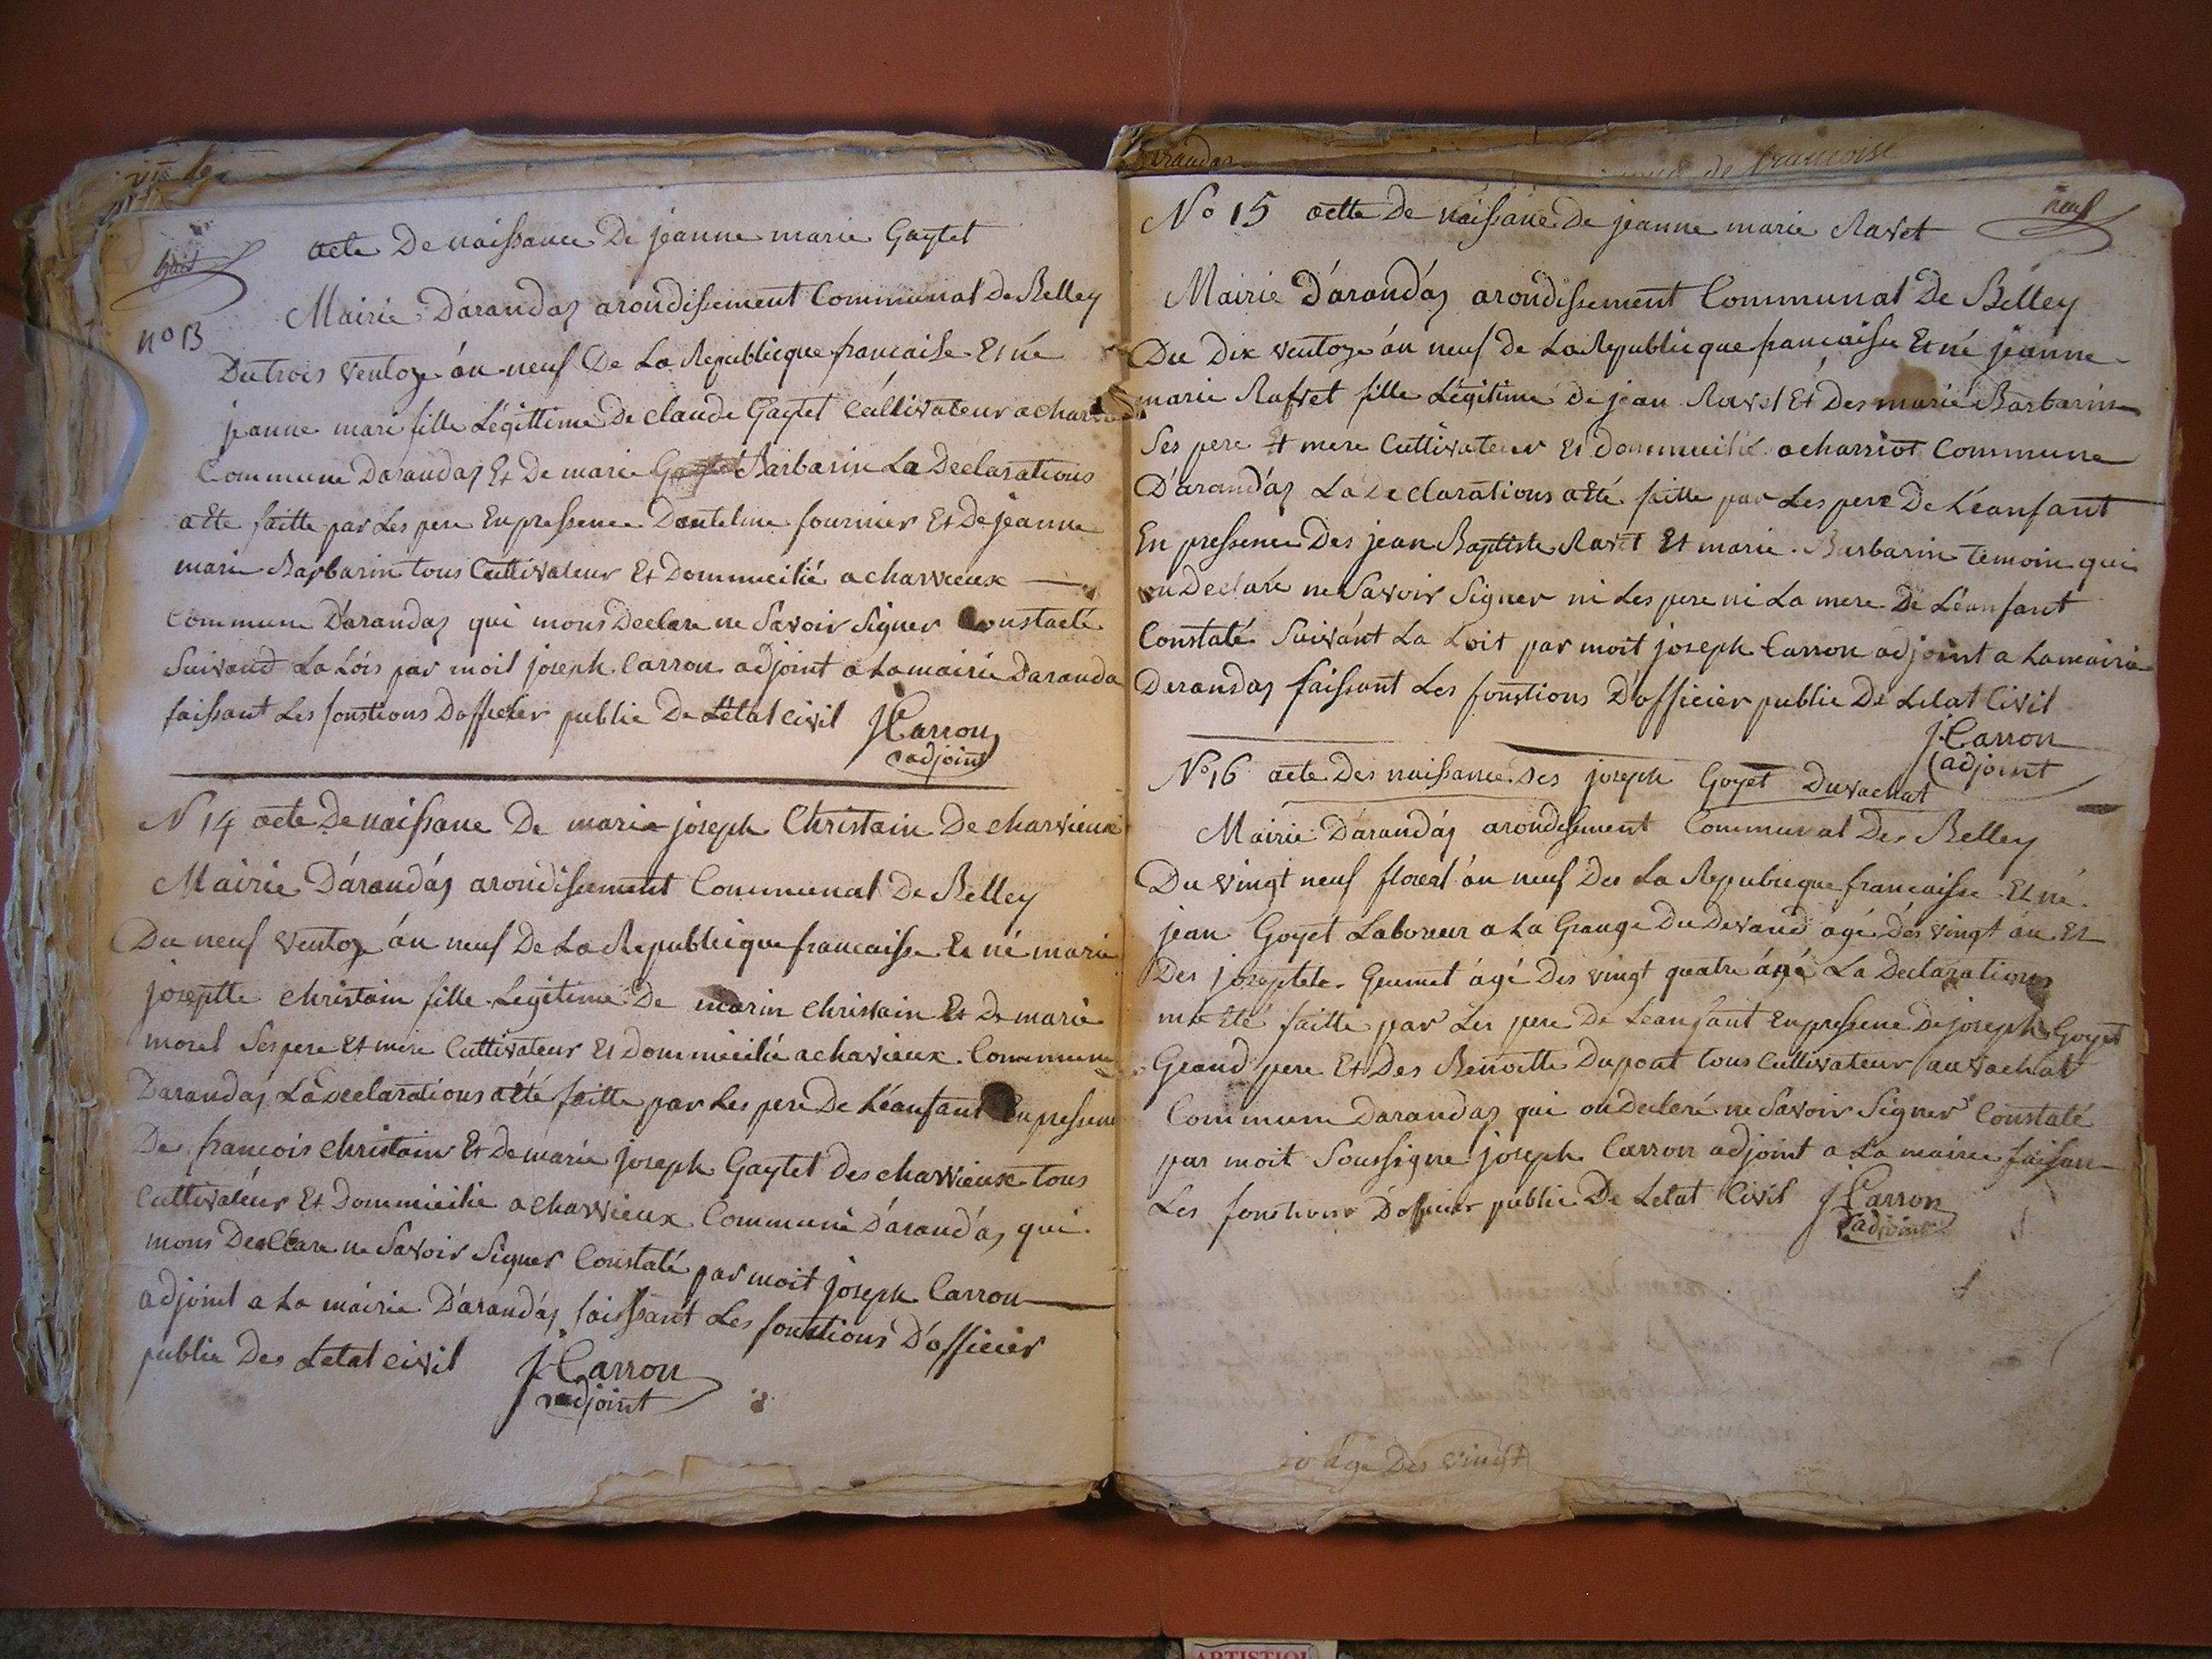 huit
acte De naissance De jeanne marie Gaytet
no 13
Mairie D'arandas arondissement Communal De Belley
Du trois ventoze án neuf De La Republicque francaise Et né
jeanne mari fille Légittime De claude Gaytet Cultivateur a
Commune Darandas Et De marie Barbarin La Declarations
a Ete faitte par Les pere En pressence Dantelme fournier Et De jeanne
marie Barbarin tous Cultivateur Et Dommicilié a charvieux
Commune D'arandas qui mons Declare ne Savoir Signer Constaté
Suivand La Lois par moit joseph Carron adjoint a La mairie Daranda
faissant Les fonstions Dofficier public De Létat civil
J Carron
adjoint
N 14 acte De naissane De marie joseph Christain De charvieux
Mairie D'arandás arondissement Communal De Belley
Du neuf ventoze án neuf De La Republicque francaisse Et né marie
joseptte christain fille Legitime De marin christain Et De marie
morel Ses pere Et mere Cultivateur Et Dommicilié a chavieux Commune
Darandas La Declarations a été faitte par Les pere De Léanfant En pressene
De francois christain Et De marie joseph Gaytet Des charvieux tous
Cultivateur Et Dommicilie a charvieux Commune D'arandas qui
mons Declare ne Savoir Signer Constaté par moit joseph Carron
adjoint a La mairie D'arandás faissant Les fonstions D'officier
public Des Letat civil
J Carron
adjoint
arandas
de francoise
neuf
No 15 actte De naissane De jeanne marie Ravet
Mairie D'arandás arondissement Communal De Belley
Du Dix ventoze án neuf de La Republicque francaisse Et né jeanne
marie Rafvet fille Légitime De jean Ravet Et Des marie Barbarin
Ses pere Et mere Cultivateur Et dommicilié a charriot Commune
D'arandás La Declarations a Eté faitte par Les pere De Léanfant
En pressence Des jean Baptiste Ravet Et marie Barbarin temoin qui
on Declaré ne Savoir Signer ni Les pere ni La mere De Léanfant
Constaté Suivánt La Loit par moit joseph Carron adjoint a La mairie
Derandas faissant Les fonstions D'officier public De Letat Civil
J Carron
adjoint
No 16 acte Des naissance Des joseph Goyet Du vachat
Mairie D'arandás arondissement Communal Des Belley
Du vingt neuf floreal án neuf Des La Republicque francaisse Et né
jean Goyet Laboureur a La Grange Du Devand agé des vingt án Et
Des joseptte Gumet ágé Des vingt quatre La Declarations
ma Eté faitte par Les pere De Léanfant En pressene De joseph Goyet
Grand pere Et Des Benoitte Dupont tous Cultivateur au vachat
Commune Darandas qui on Decleré ne Savoir Signer Constaté
par moit Soussigne joseph Carron adjoint a La mairie faissan
Les fonstions D'officier public De Letat Civil
J Carron
adjoint
age Des vingt
ARTISTIQU